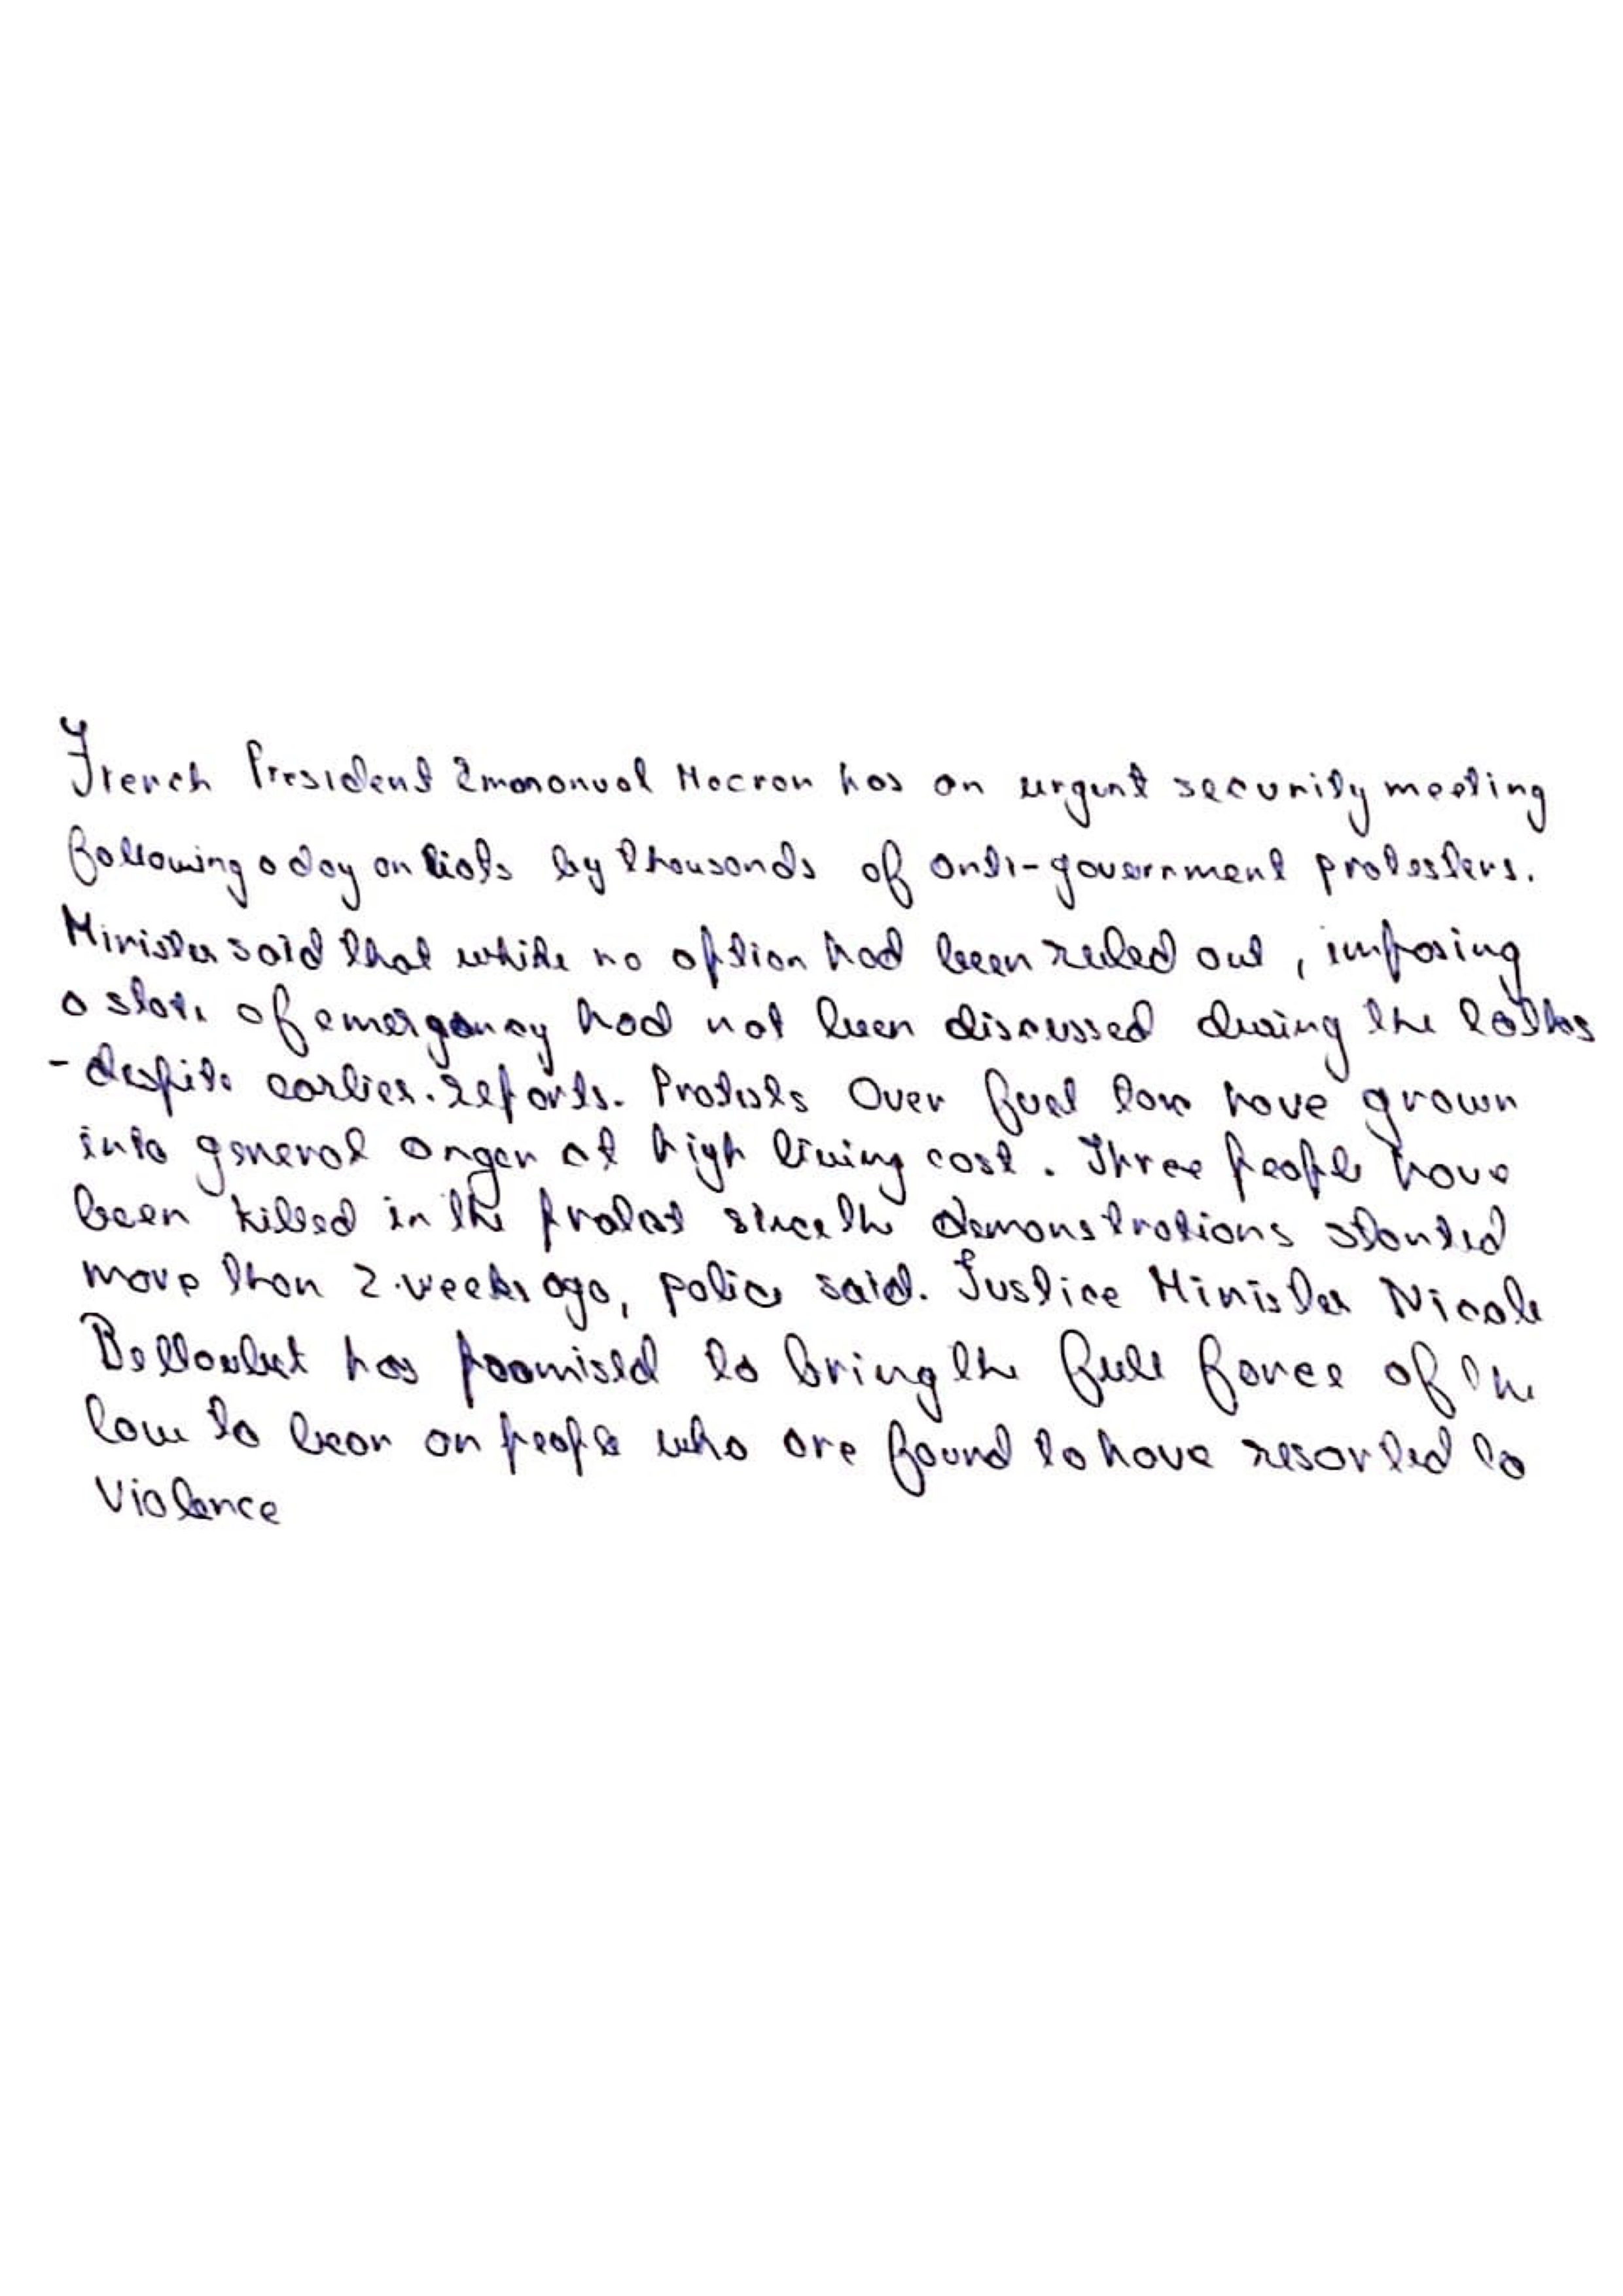 French President Emananual Macron has an urgent security meeting
following a day on liots by thousands of anti-government protesters.
Minister said that while no option had been ruled out, imposing
a state of emergency had not been discussed during the
- despite earlier. reports. Protests Over fuel have grown
into general anger at high living cost. Three people have
been killed in the protest since the demonstrations started
more than 2 weeks ago, police said. Justice Minister Nicole
Belloubet has promised to bring the full force of the
law to bear on people who are found to have resorted to
Violence